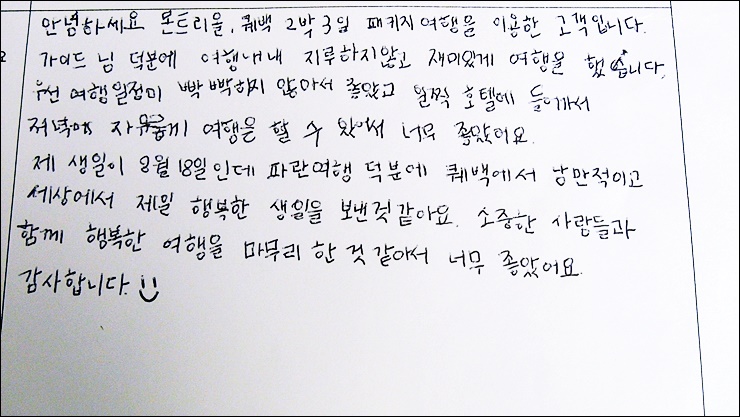 2
안녕하세요 몬트리올, 퀘백 2박 3일 패키지여행을 이용한 고객입니다.
가이드 님 덕분에 여행내내 지루하지않고 재미있게 여행을 했습니다.
우선 여행일정이 빡빡하지 않아서 좋았고 일찍 호텔에 들어가서
저녁에 자유롭게 여행을 할 수 있어서 너무 좋았어요.
제 생일이 8월 18일인데 파란여행 덕분에 퀘백에서 낭만적이고
세상에서 제일 행복한 생일을 보낸것 같아요. 소중한 사람들과
함께 행복한 여행을 마무리 한 것 같아서 너무 좋았어요.
감사합니다.